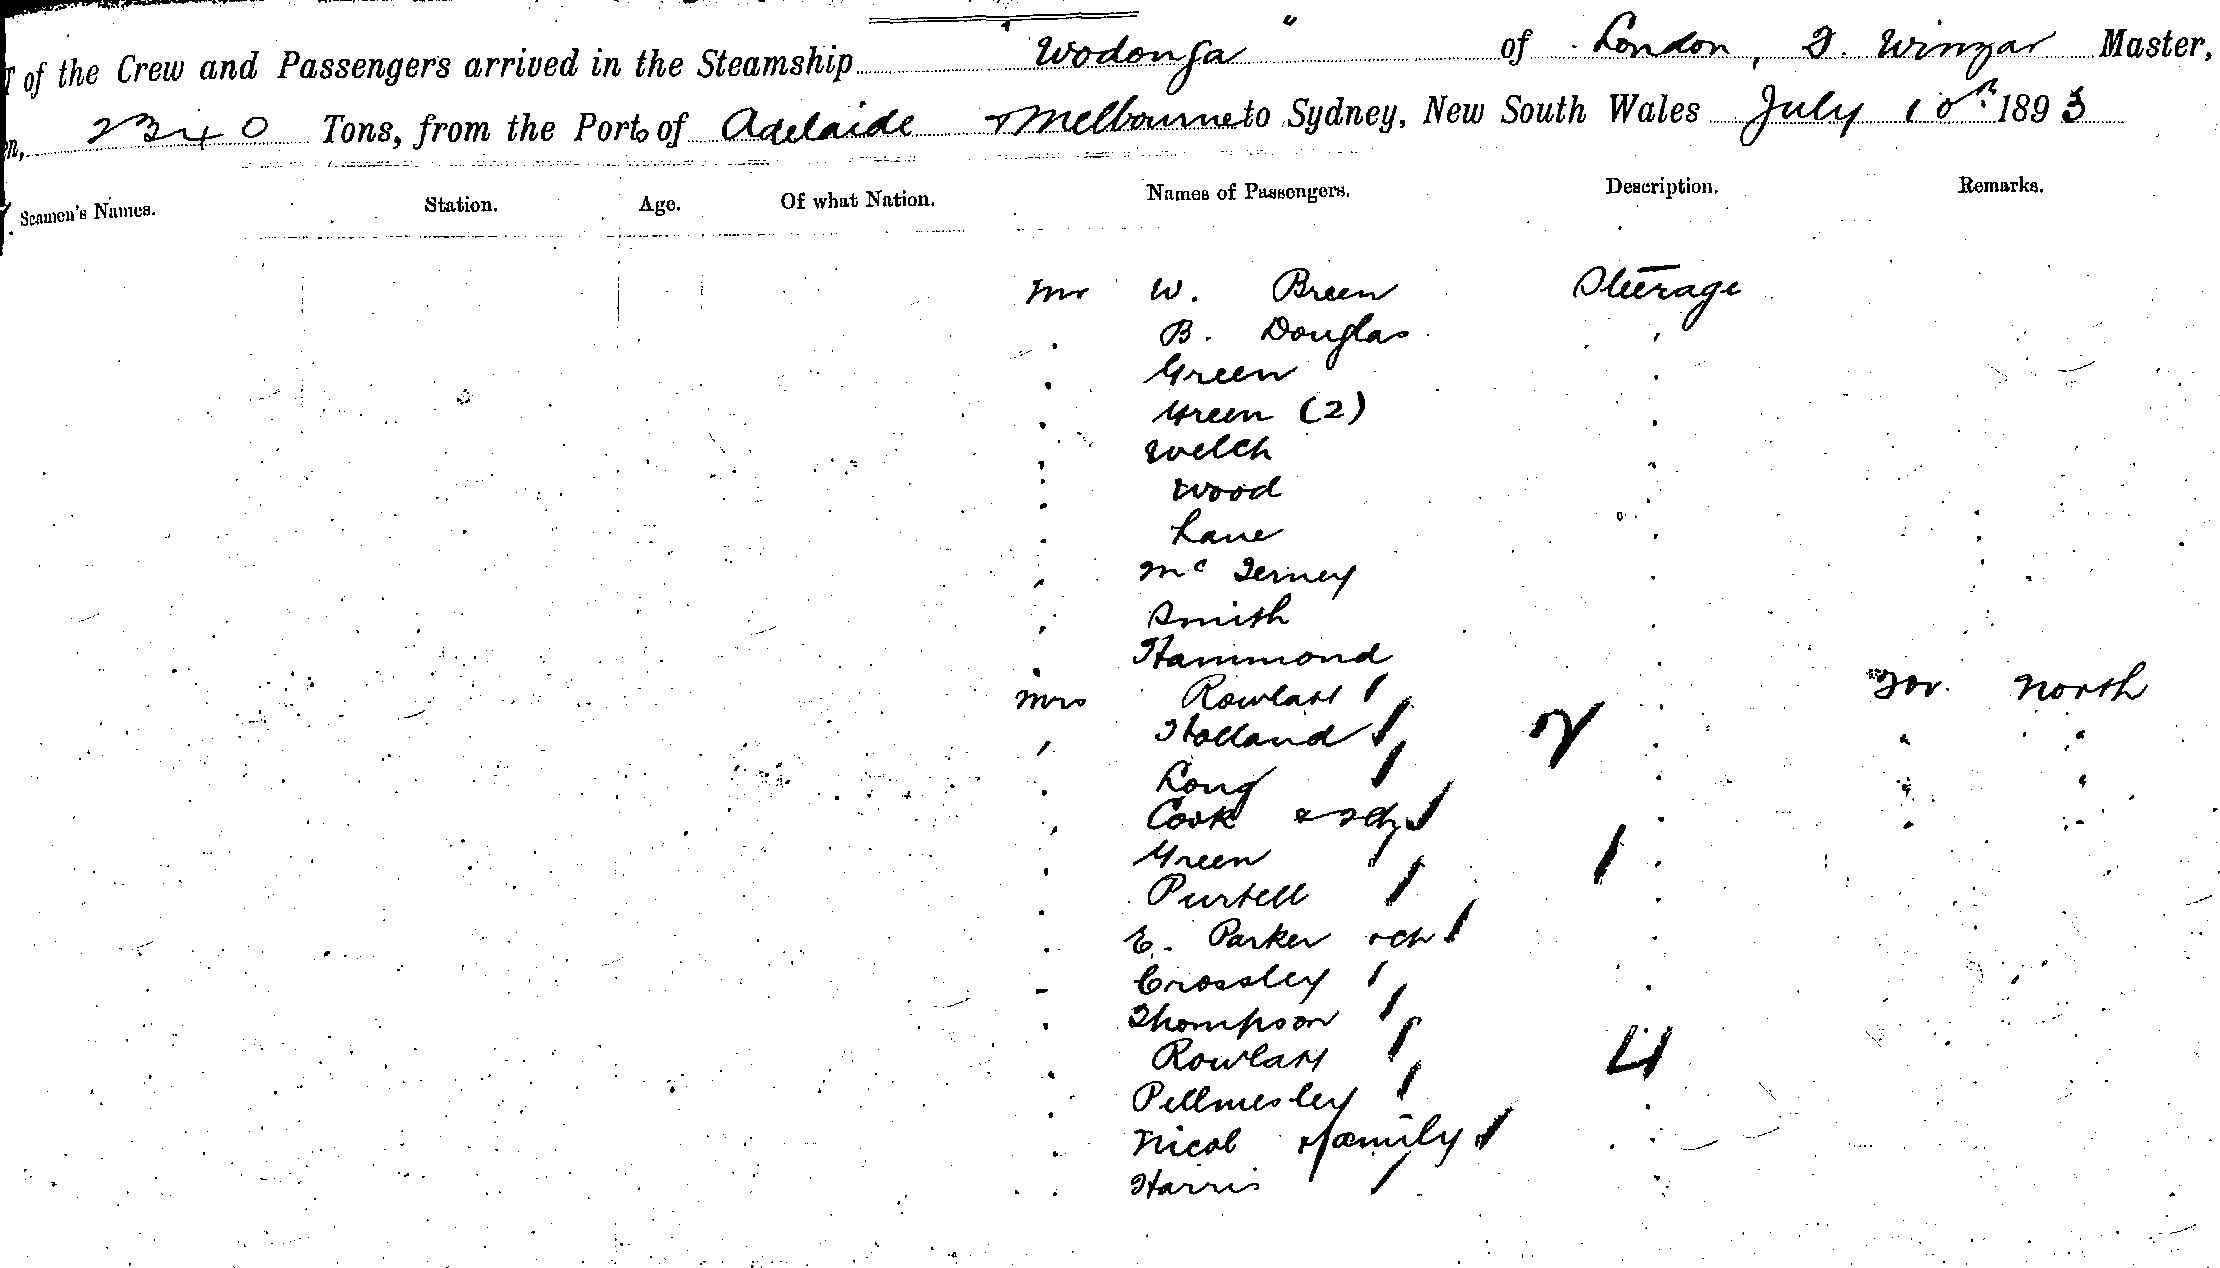 of the Crew and Passengers arrived in the Steamship "Wodonga" of London, D. Winzar Master,
2340 Tons, from the Port of Adelaide + Melbourne to Sydney, New South Wales July 10th 1893
Seamen's Names. Station. Age. Of what Nation. Names of Passengers. Description. Remarks.
Mr W. Breen Steerage
B. Douglas
Green
Green (2)
Welch
Wood
Lane
Smith
Hammond
Mrs Rowlatt For North
Holland " "
Long " "
Cook " "
Green 1
Purtell
E. Parker + ch
Crossley
Thompson
Rowlatt 4
Pellmesley
Nicol + family
Harris